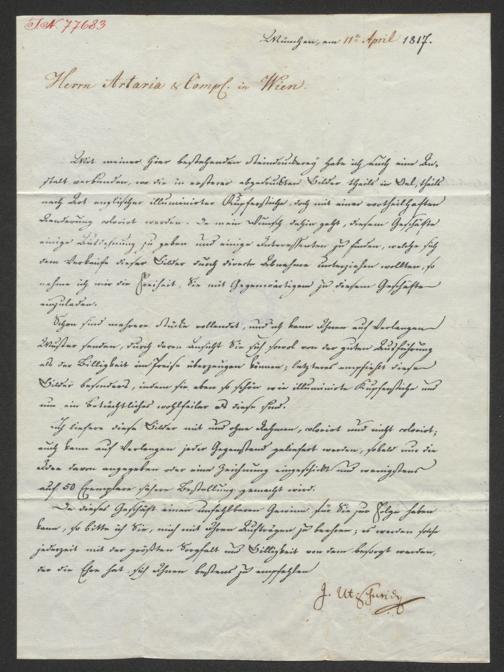 I.N. 77683
München, am 11ten April 1817.
Herrn Artaria & Comp. in Wien.
Mit meiner hier bestehenden Steindruckerey habe ich auch eine An-
stalt verbunden, wo die in ersterer abgedruckten Bilder theils in Oel, theils
nach Art englischer illuminirter Kupferstiche, doch mit einer vortheilhaften
Aenderung colorirt werden. Da mein Wunsch dahin geht, diesem Geschäfte
einige Ausdehnung zu geben und einige Interessenten zu finden, welche sich
dem Verkaufe dieser Bilder durch directe Abnahme unterziehen wollten, so
nehme ich mir die Freiheit, Sie mit Gegenwärtigem zu diesem Geschäfte
einzuladen.
Schon sind mehrere Stücke vollendet, und ich kann Ihnen auf Verlangen
Muster senden, durch deren Ansicht Sie sich sowol von der guten Ausführung
als der Billigkeit im Preise überzeugen können; letzteres empfiehlt diese
Bilder besonders, indem sie eben so schön wie illuminirte Kupferstiche und
um ein beträchtliches wohlfeiler als diese sind.
Ich liefere diese Bilder mit und ohne Rahmen, colorirt und nicht colorirt;
auch kann auf Verlangen jeder Gegenstand geliefert werden, sobald nur die
Idee davon angegeben oder eine Zeichnung eingeschickt und wenigstens
auf 50 Exemplare sichere Bestellung gemacht wird.
Da dieses Geschäft einen unfehlbaren Gewinn für Sie zur Folge haben
kann, so bitte ich Sie, mich mit Ihren Aufträgen zu beehren; es werden solche
jederzeit mit der größten Sorgfalt und Billigkeit von dem besorgt werden,
der die Ehre hat sich Ihnen bestens zu empfehlen
J. Utzschneider